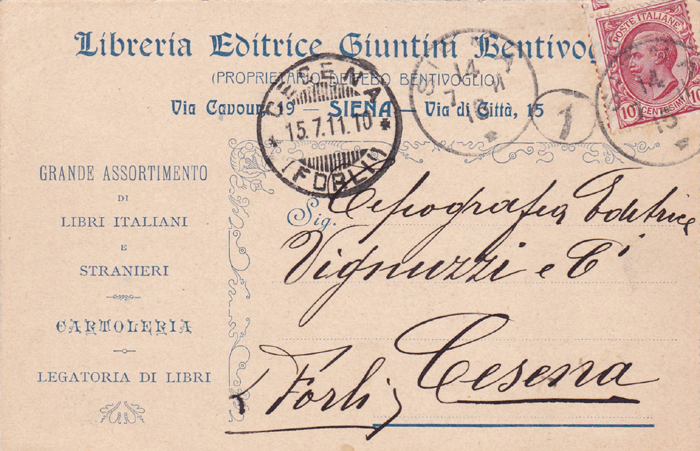 Libreria Editrice Giuntini Bentivog
(PROPRIETARIO DELEBO BENTIVOGLIO)
Via Cavour, 19 — SIENA — Via di Città, 15
POSTE ITALIANE
10 CENTESIMI 10
CESENA
15.7.11.10
(FORLI)
SIENA
14
7
1
GRANDE ASSORTIMENTO
DI
LIBRI ITALIANI
E
STRANIERI
CARTOLERIA
LEGATORIA DI LIBRI
Sig. Tipografia Editrice
Vignuzzi e Cⁱ
Cesena
(Forlì)